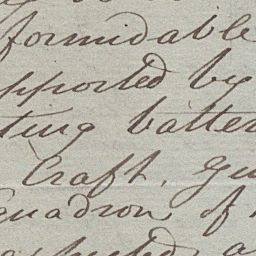 formidable
pported by
ting batter
Craft. Gu
Squadron, of